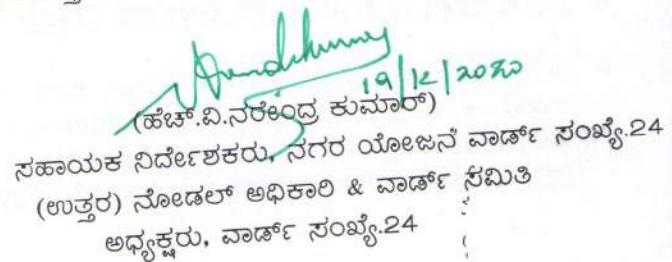 19/12/2020
(ಹೆಚ್.ವಿ.ನರೇಂದ್ರ ಕುಮಾರ್)
ಸಹಾಯಕ ನಿರ್ದೇಶಕರು, ನಗರ ಯೋಜನೆ ವಾರ್ಡ್ ಸಂಖ್ಯೆ.24
(ಉತ್ತರ) ನೋಡಲ್ ಅಧಿಕಾರಿ & ವಾರ್ಡ್ ಸಮಿತಿ
ಅಧ್ಯಕ್ಷರು, ವಾರ್ಡ್ ಸಂಖ್ಯೆ.24